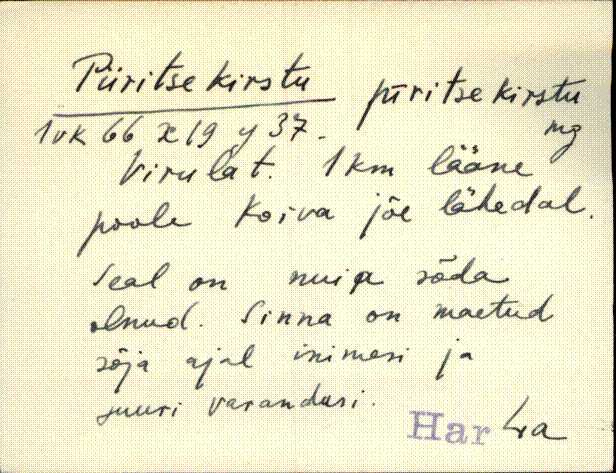 Püritse kirstu püritse kirstu
1vk 66 x 19 y 37. mg
Virulat. 1 km lääne
poole Koiva jõe lähedal.
Seal on muia sõda
olnud. Sinna on maetud
sõja ajal inimesi ja
suuri varandusi.
Har